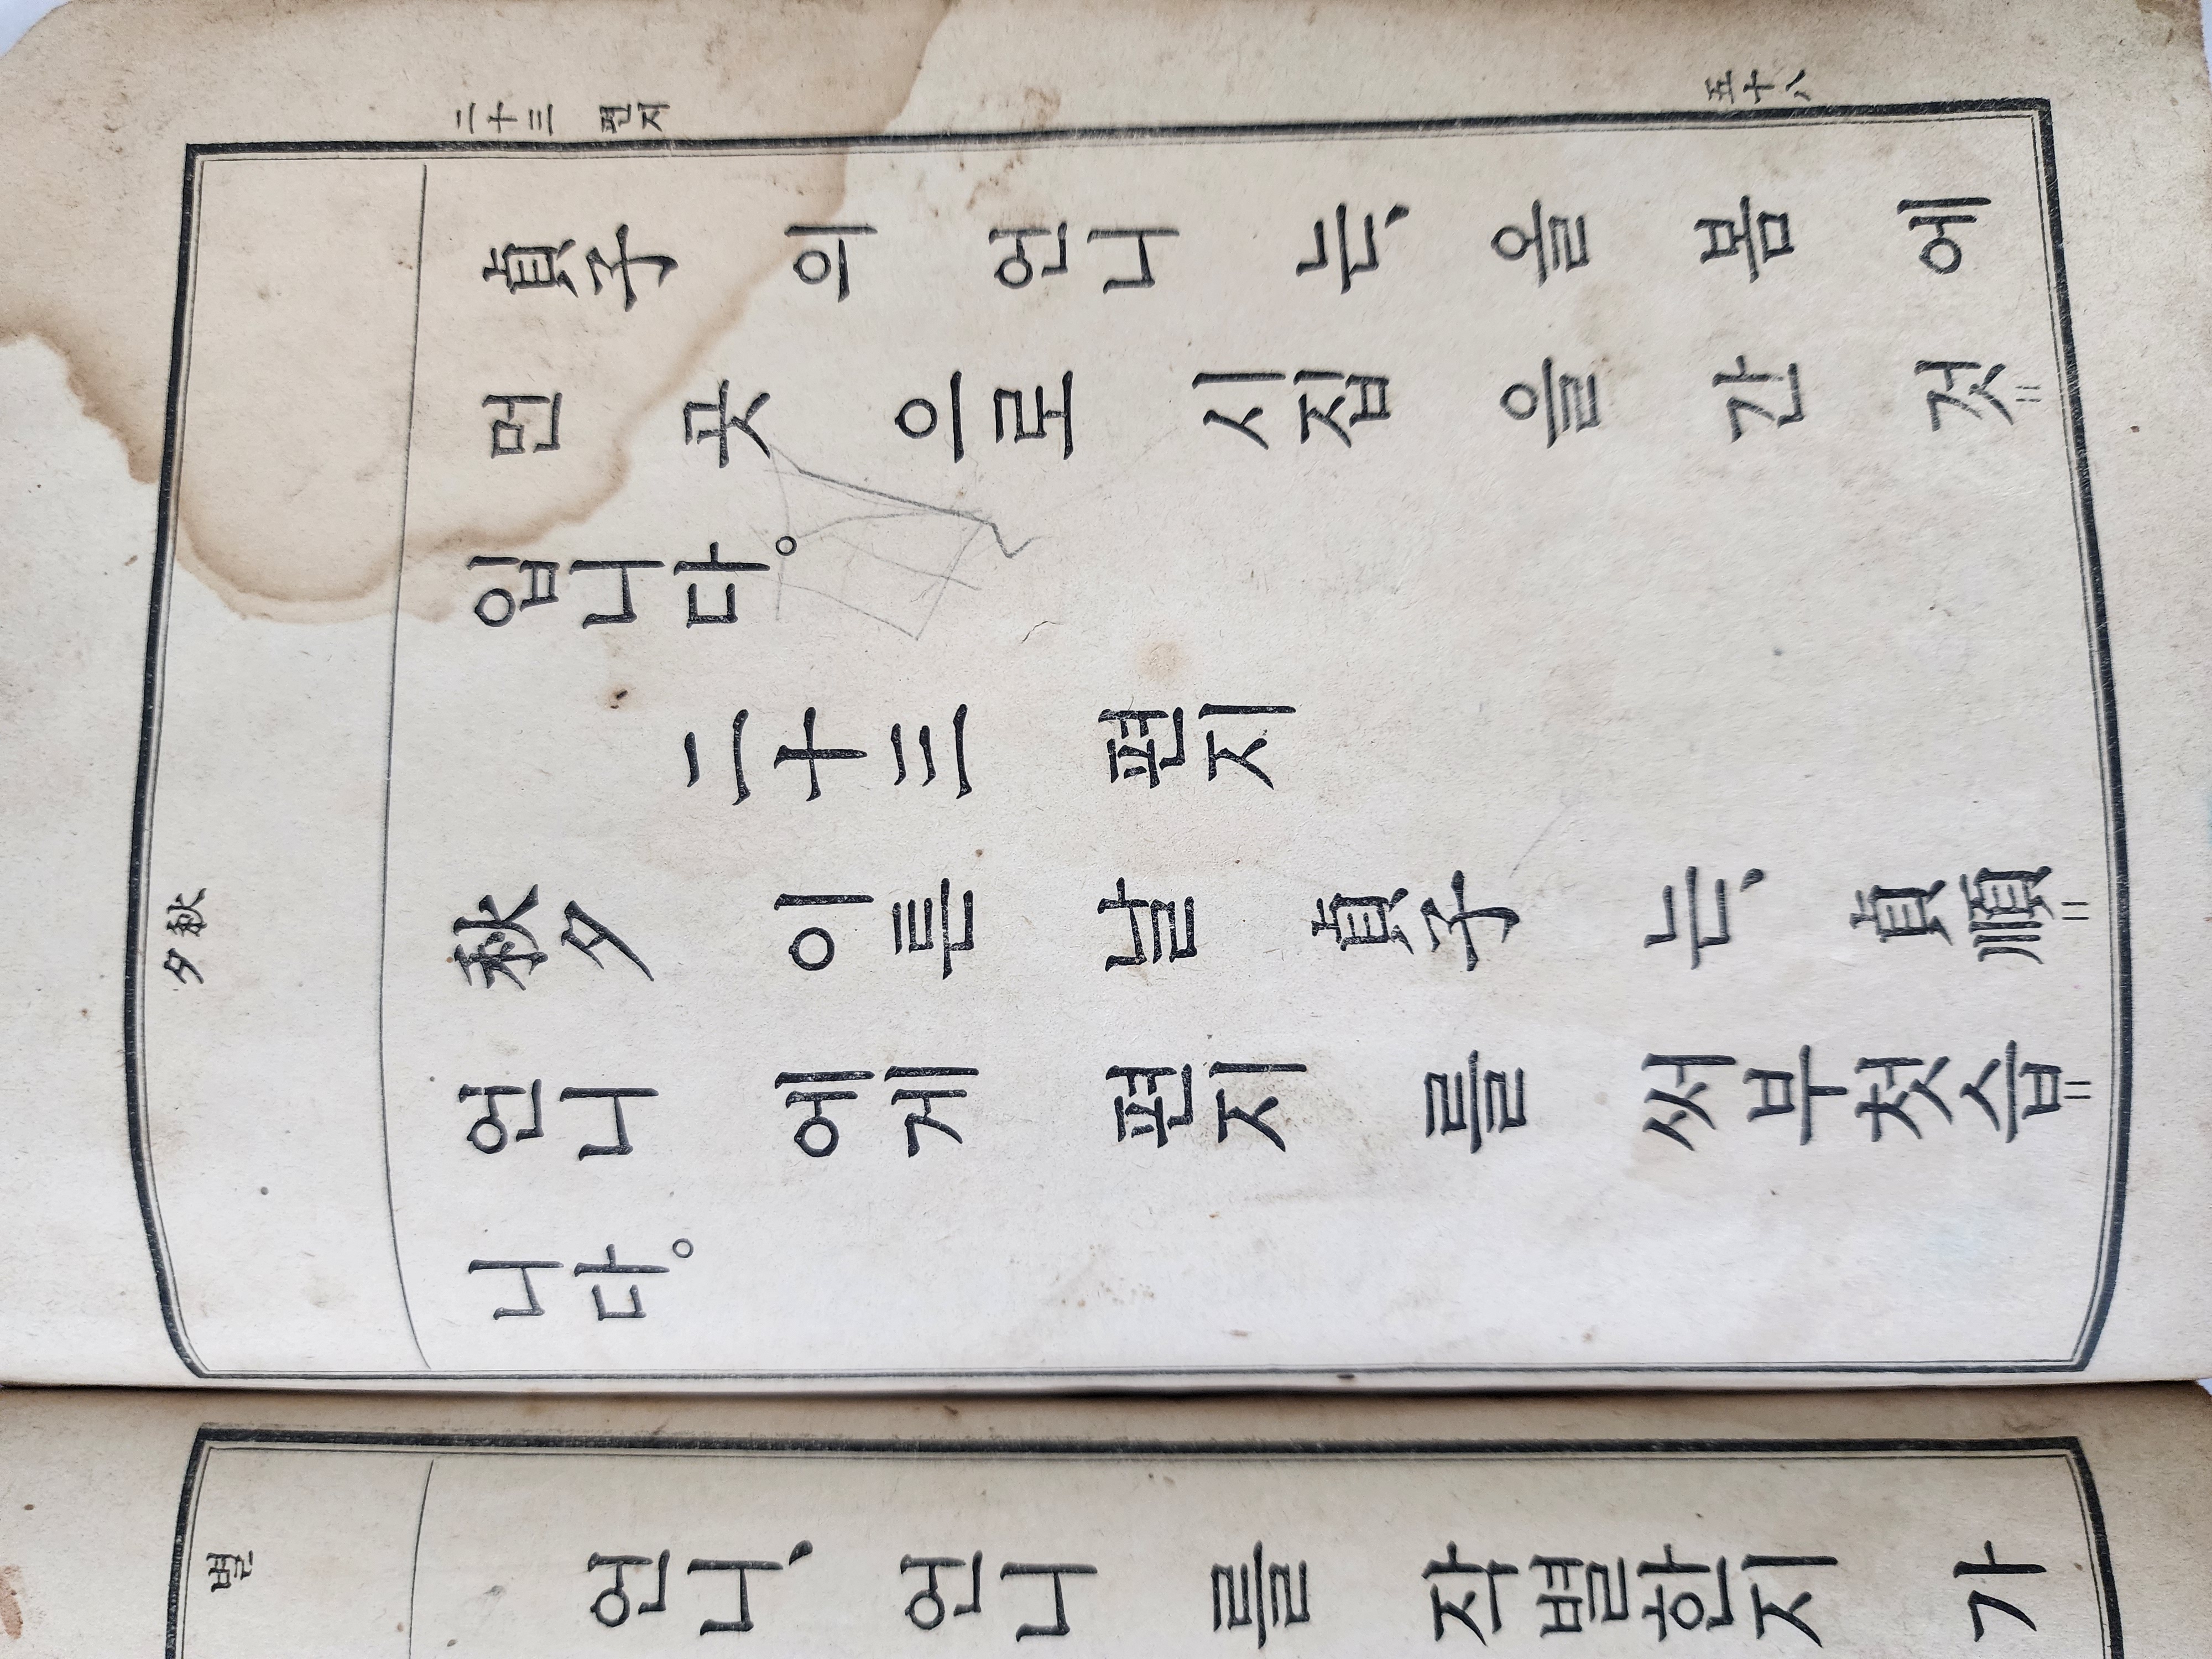 二十三 편지
五十八
貞子 의 언니 는、 올 봄 에
먼 곳 으로 시집 을 간 것=
입니다。
二十三 편지
秋夕
秋夕 이튼 날 貞子 는、 貞順=
언니 에게 편지 를 써부첫슴=
니다。
별
언니、 언니 를 작별한지 가